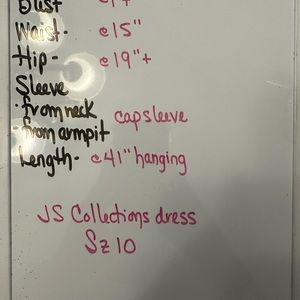 Bust
Waist- @15"
Hip- @19"+
Sleeve
·from neck capsleeve
-from armpit
Length- @41" hanging
JS Collections dress
Sz 10